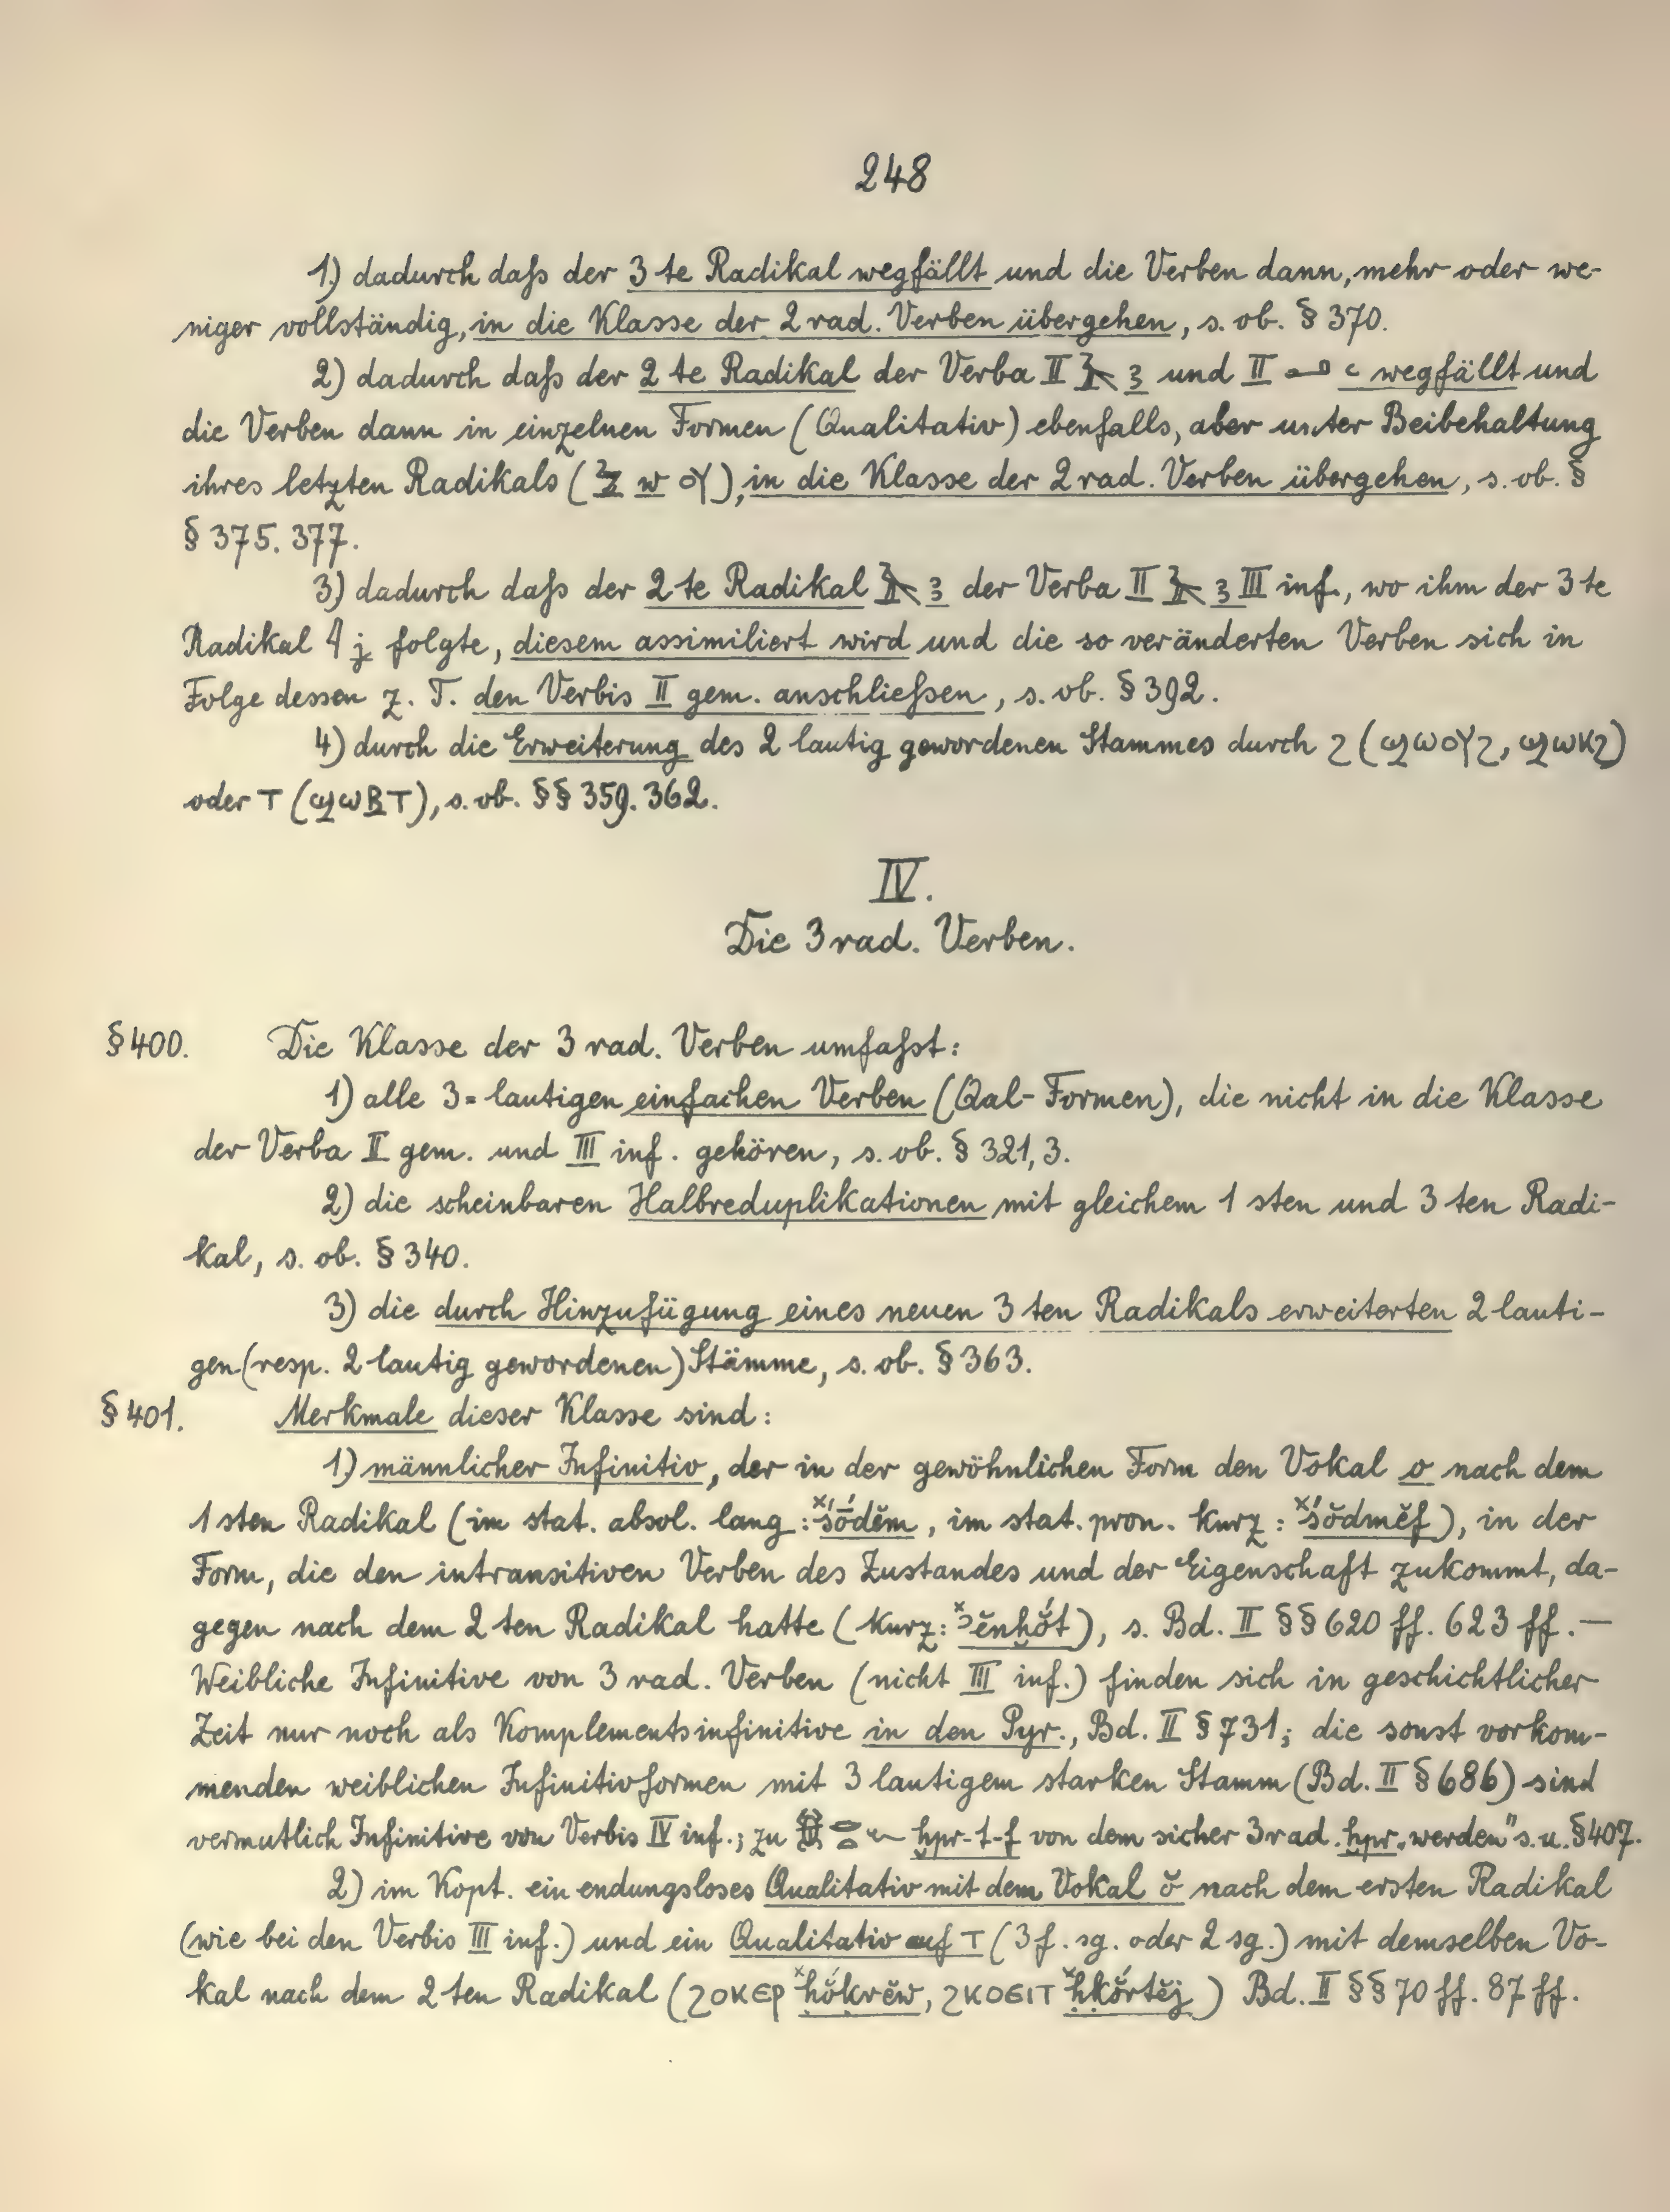 248
1.) dadurch daſs der 3 te Radikal wegfällt und die Verben dann, mehr oder we-
niger vollständig, in die Klasse der 2 rad. Verben übergehen, s. ob. § 370.
2) dadurch daſs der 2 te Radikal der Verba II 𓄿 ꜣ und II 𓂝 ꜥ wegfällt und
die Verben dann in einzelnen Formen (Qualitativ) ebenfalls, aber unter Beibehaltung
ihres letzten Radikals ( w ⲟⲩ), in die Klasse der 2 rad. Verben übergehen, s. ob. §
§ 375. 377.
3) dadurch daſs der 2 te Radikal 𓄿 ꜣ der Verba II 𓄿 ꜣ III inf., wo ihm der 3 te
Radikal 𓇋 j folgte, diesem assimiliert wird und die so veränderten Verben sich in
Folge dessen z. T. den Verbis II gem. anschlieſsen, s. ob. § 392.
4) durch die Erweiterung des 2 lautig gewordenen Stammes durch ϩ (ϣⲱⲟⲩϩ, ϣⲱⲕϩ)
oder ⲧ (ϣⲱⲃⲧ), s. ob. §§ 359. 362.
IV.
Die 3 rad. Verben.
§ 400. Die Klasse der 3 rad. Verben umfaſst:
1) alle 3=lautigen einfachen Verben (Qal-Formen), die nicht in die Klasse
der Verba II gem. und III inf. gehören, s. ob. § 321, 3.
2) die scheinbaren Halbreduplikationen mit gleichem 1 sten und 3 ten Radi-
kal, s. ob. § 340.
3) die durch Hinzufügung eines neuen 3 ten Radikals erweiterten 2 lauti-
gen (resp. 2 lautig gewordenen) Stämme, s. ob. § 363.
§ 401. Merkmale dieser Klasse sind:
1.) männlicher Infinitiv, der in der gewöhnlichen Form den Vokal o nach dem
1 sten Radikal (im stat. absol. lang: ˣśṓdĕm, im stat. pron. kurz: ˣśŏ́dmĕf), in der
Form, die den intransitiven Verben des Zustandes und der Eigenschaft zukommt, da-
gegen nach dem 2 ten Radikal hatte (kurz: ˣꜣĕnḫŏ́t), s. Bd. II §§ 620 ff. 623 ff. —
Weibliche Infinitive von 3 rad. Verben (nicht III inf.) finden sich in geschichtlicher
Zeit nur noch als Komplementsinfinitive in den Pyr., Bd. II § 731; die sonst vorkom-
menden weiblichen Infinitivformen mit 3 lautigem starken Stamm (Bd. II § 686) sind
vermutlich Infinitive von Verbis IV inf.; zu 𓆣𓂋𓏏𓆑 ḫpr-t-f von dem sicher 3 rad. ḫpr „werden" s. u. § 407.
2) im Kopt. ein endungsloses Qualitativ mit dem Vokal ŏ nach dem ersten Radikal
(wie bei den Verbis III inf.) und ein Qualitativ auf ⲧ (3 f. sg. oder 2 sg.) mit demselben Vo-
kal nach dem 2 ten Radikal (ϩⲟⲕⲉⲣ ˣḥŏ́krĕw, ϩⲕⲟⲉⲓⲧ ˣḥkŏ́rtĕj) Bd. II §§ 70 ff. 87 ff.